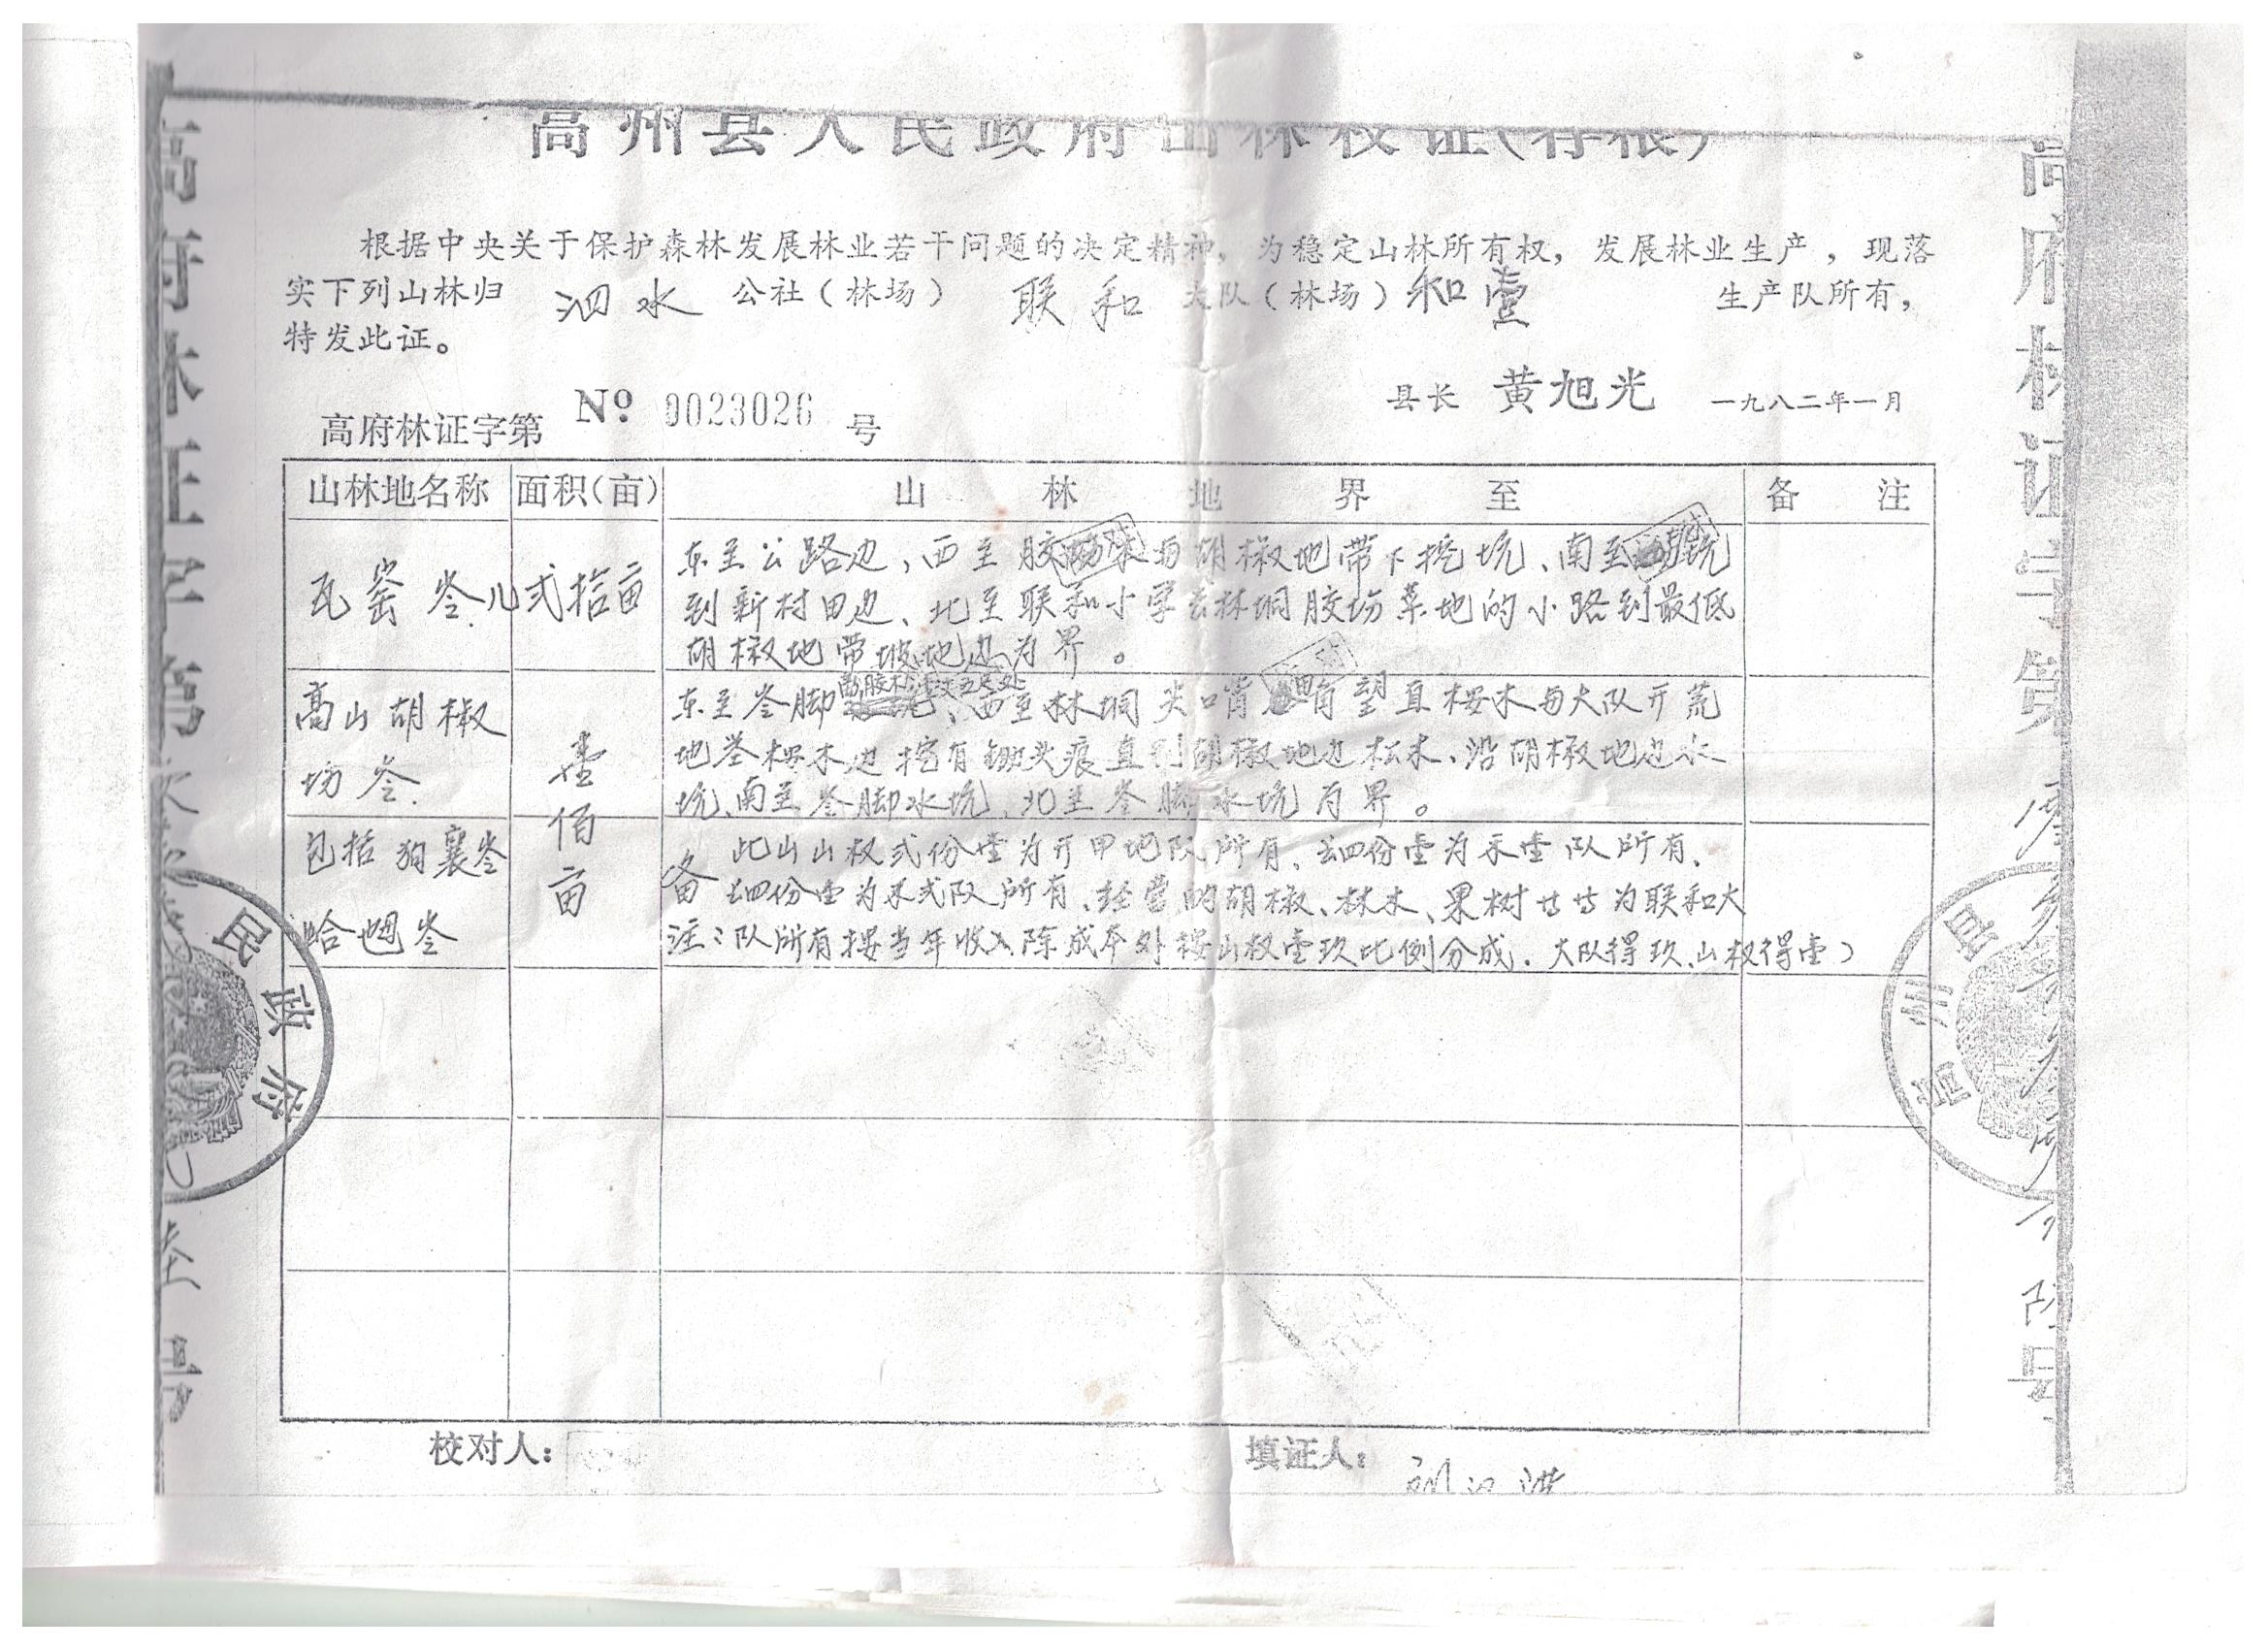 高州县人民政府山林权证(存根)
根据中央关于保护森林发展林业若干问题的决定精神，为稳定山林所有权，发展林业生产，现落
实下列山林归 泗水 公社（林场） 联和 大队（林场） 和壹 生产队所有，
特发此证。
县长 黄旭光 一九八二年一月
高府林证字第 № 0023026 号
山林地名称 面积(亩) 山林地界至 备注
瓦窑岺儿 式拾亩
东至公路边、西至胶 与胡椒地带下挖坑、南至 坑
到新村田边、北至联和小学去林垌胶场菜地的小路到最低
胡椒地带坡地边为界。
高山胡椒
场岺
壹佰亩
东至岺脚 、西至林垌尖口背 望直桉木与大队开荒
地岺桉木边挖有锄头痕直到胡椒地边松木、沿胡椒地边水
坑、南至岺脚水坑、北至岺脚水坑为界。
包括狗襄岺
蛤乸岺
备注：此山山权式份壹为开甲地队所有、去四份壹为禾壹队所有、
去四份壹为禾式队所有、经营的胡椒、林木、果树 为联和大
队所有按当年收入除成本外按山权壹玖比例分成．大队得玖、山权得壹）
民政府
高州县
校对人：
填证人：